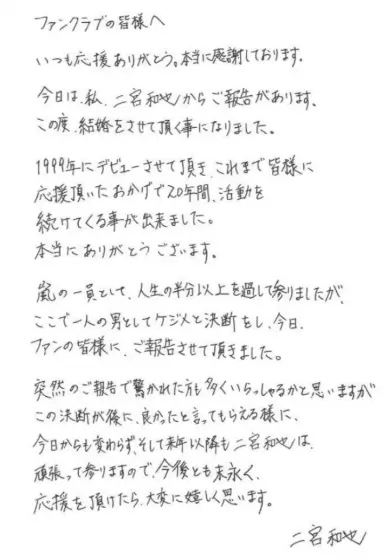 ファンクラブの皆様へ
いつも応援ありがとう。本当に感謝しております。
今日は、私、二宮和也からご報告があります。
この度、結婚をさせて頂く事になりました。
1999年にデビューさせて頂き、これまで皆様に
応援頂いたおかげで20年間、活動を
続けてくる事が出来ました。
本当にありがとうございます。
嵐の一員として、人生の半分以上を過して参りましたが、
ここで一人の男としてケジメと決断をし、今日、
ファンの皆様に、ご報告させて頂きました。
突然のご報告で驚かれた方も多くいらっしゃるかと思いますが
この決断が後に、良かったと言ってもらえる様に、
今日からも変わらず、そして来年以降も二宮和也は、
頑張って参りますので、今後とも末永く、
応援を頂けたら、大変に嬉しく思います。
二宮和也